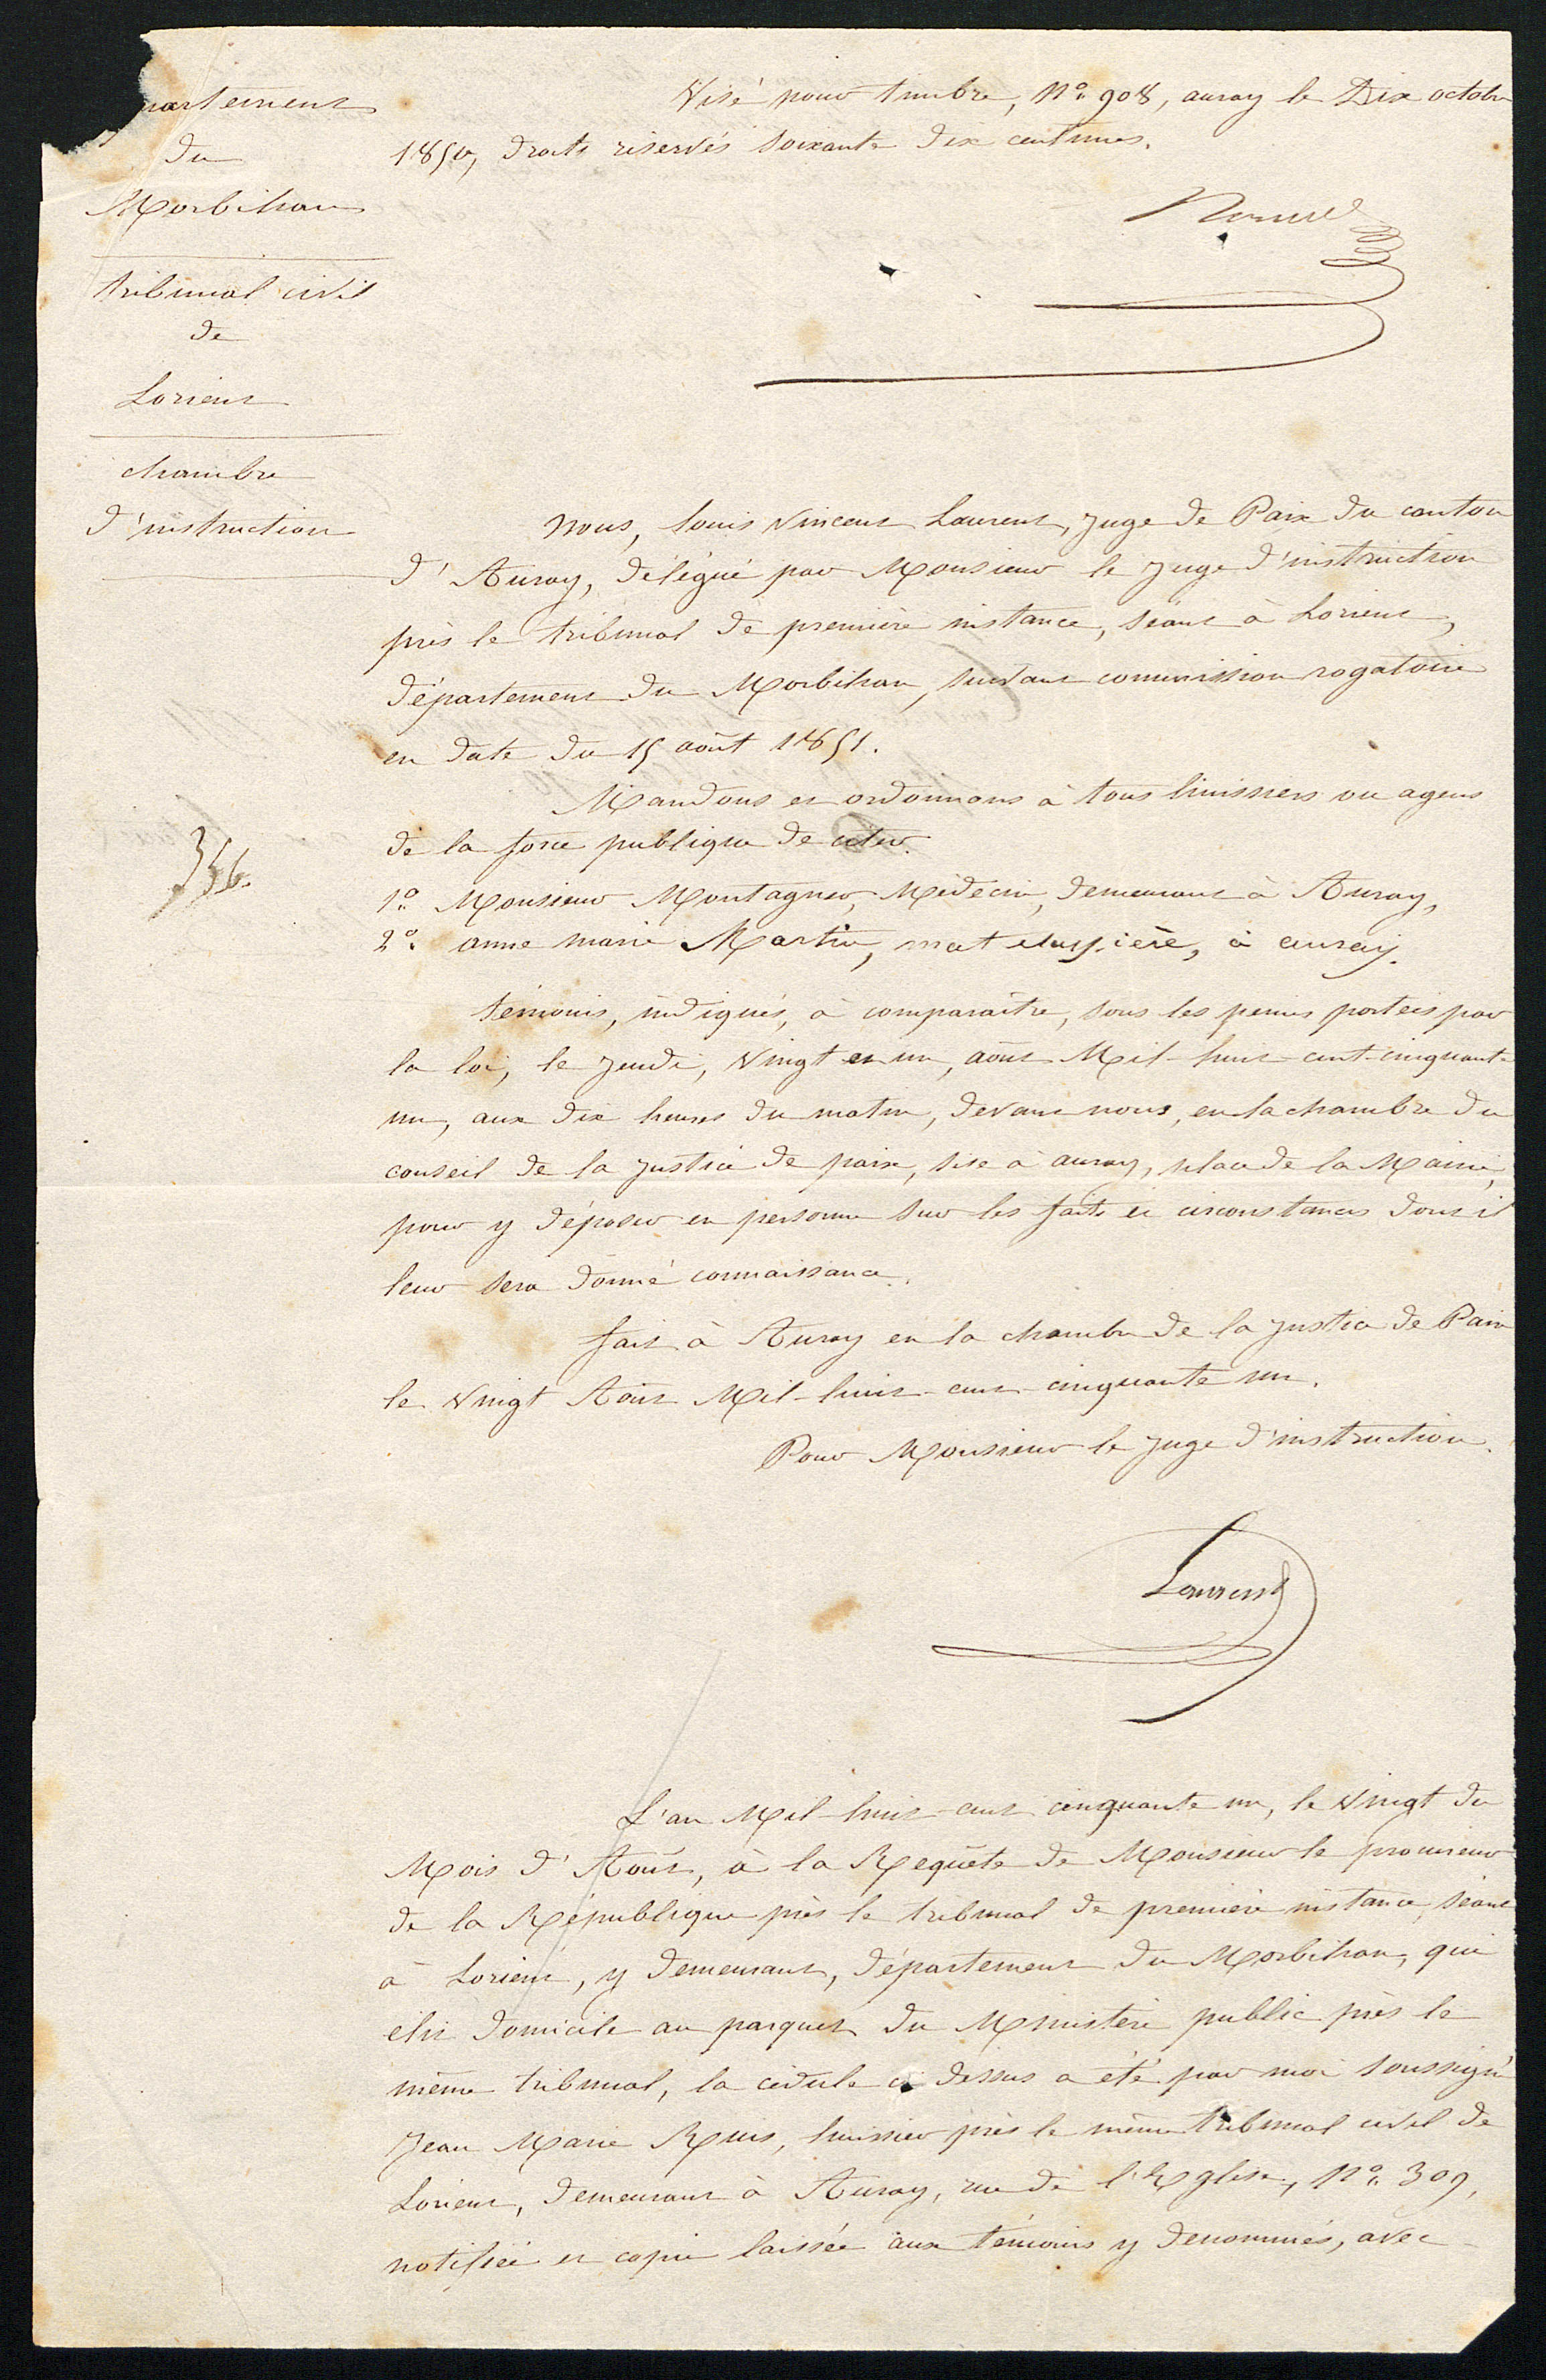 partement
du
Morbihan
tribunal civil
de
Lorient
chambre
d'instruction
Visé pour timbre, N° 908, auray le Dix octobre
1850, droits réservés soixante dix centimes.
Nous, Louis Vincent Laurent, juge de Paix du canton
d'Auray, délégué par Monsieur le juge d'instruction
près le tribunal de première instance, séant à Lorient,
département du Morbihan, suivant commission rogatoire
en date du 15 août 1851.
Mandons et ordonnons à tous huissiers ou agens
de la force publique de citer.
356.
1° Monsieur Montagner, Médecin, demeurant à Auray,
2° anne marie Martin, matelassière, à auray.
témoins, indiqués, à comparaître, sous les peines portées par
la loi, le jeudi, vingt et un, août Mil-huit-cent-cinquante
un, aux dix heures du matin, devant nous, en la chambre du
conseil de la justice de paix, sise à auray, place de la Mairie,
pour y déposer en personne sur les faits et circonstances dont il
leur sera donné connaissance.
fait à Auray en la chambre de la justice de Paix
le vingt Août Mil-huit-cent-cinquante un.
Pour Monsieur le juge d'instruction.
Laurent
L'an Mil-huit-cent cinquante un, le vingt du
Mois d'Août, à la Requête de Monsieur le procureur
de la République près le tribunal de première instance, séant
à Lorient, y demeurant, département du Morbihan, qui
élit domicile au parquet du Ministère public près le
même tribunal, la cédule ci dessus a été par moi soussigné
Jean Marie Ruis, huissier près le même tribunal civil de
Lorient, demeurant à Auray, rue de l'Eglise, N° 309,
notifiée et copie laissée aux témoins y dénommés, avec